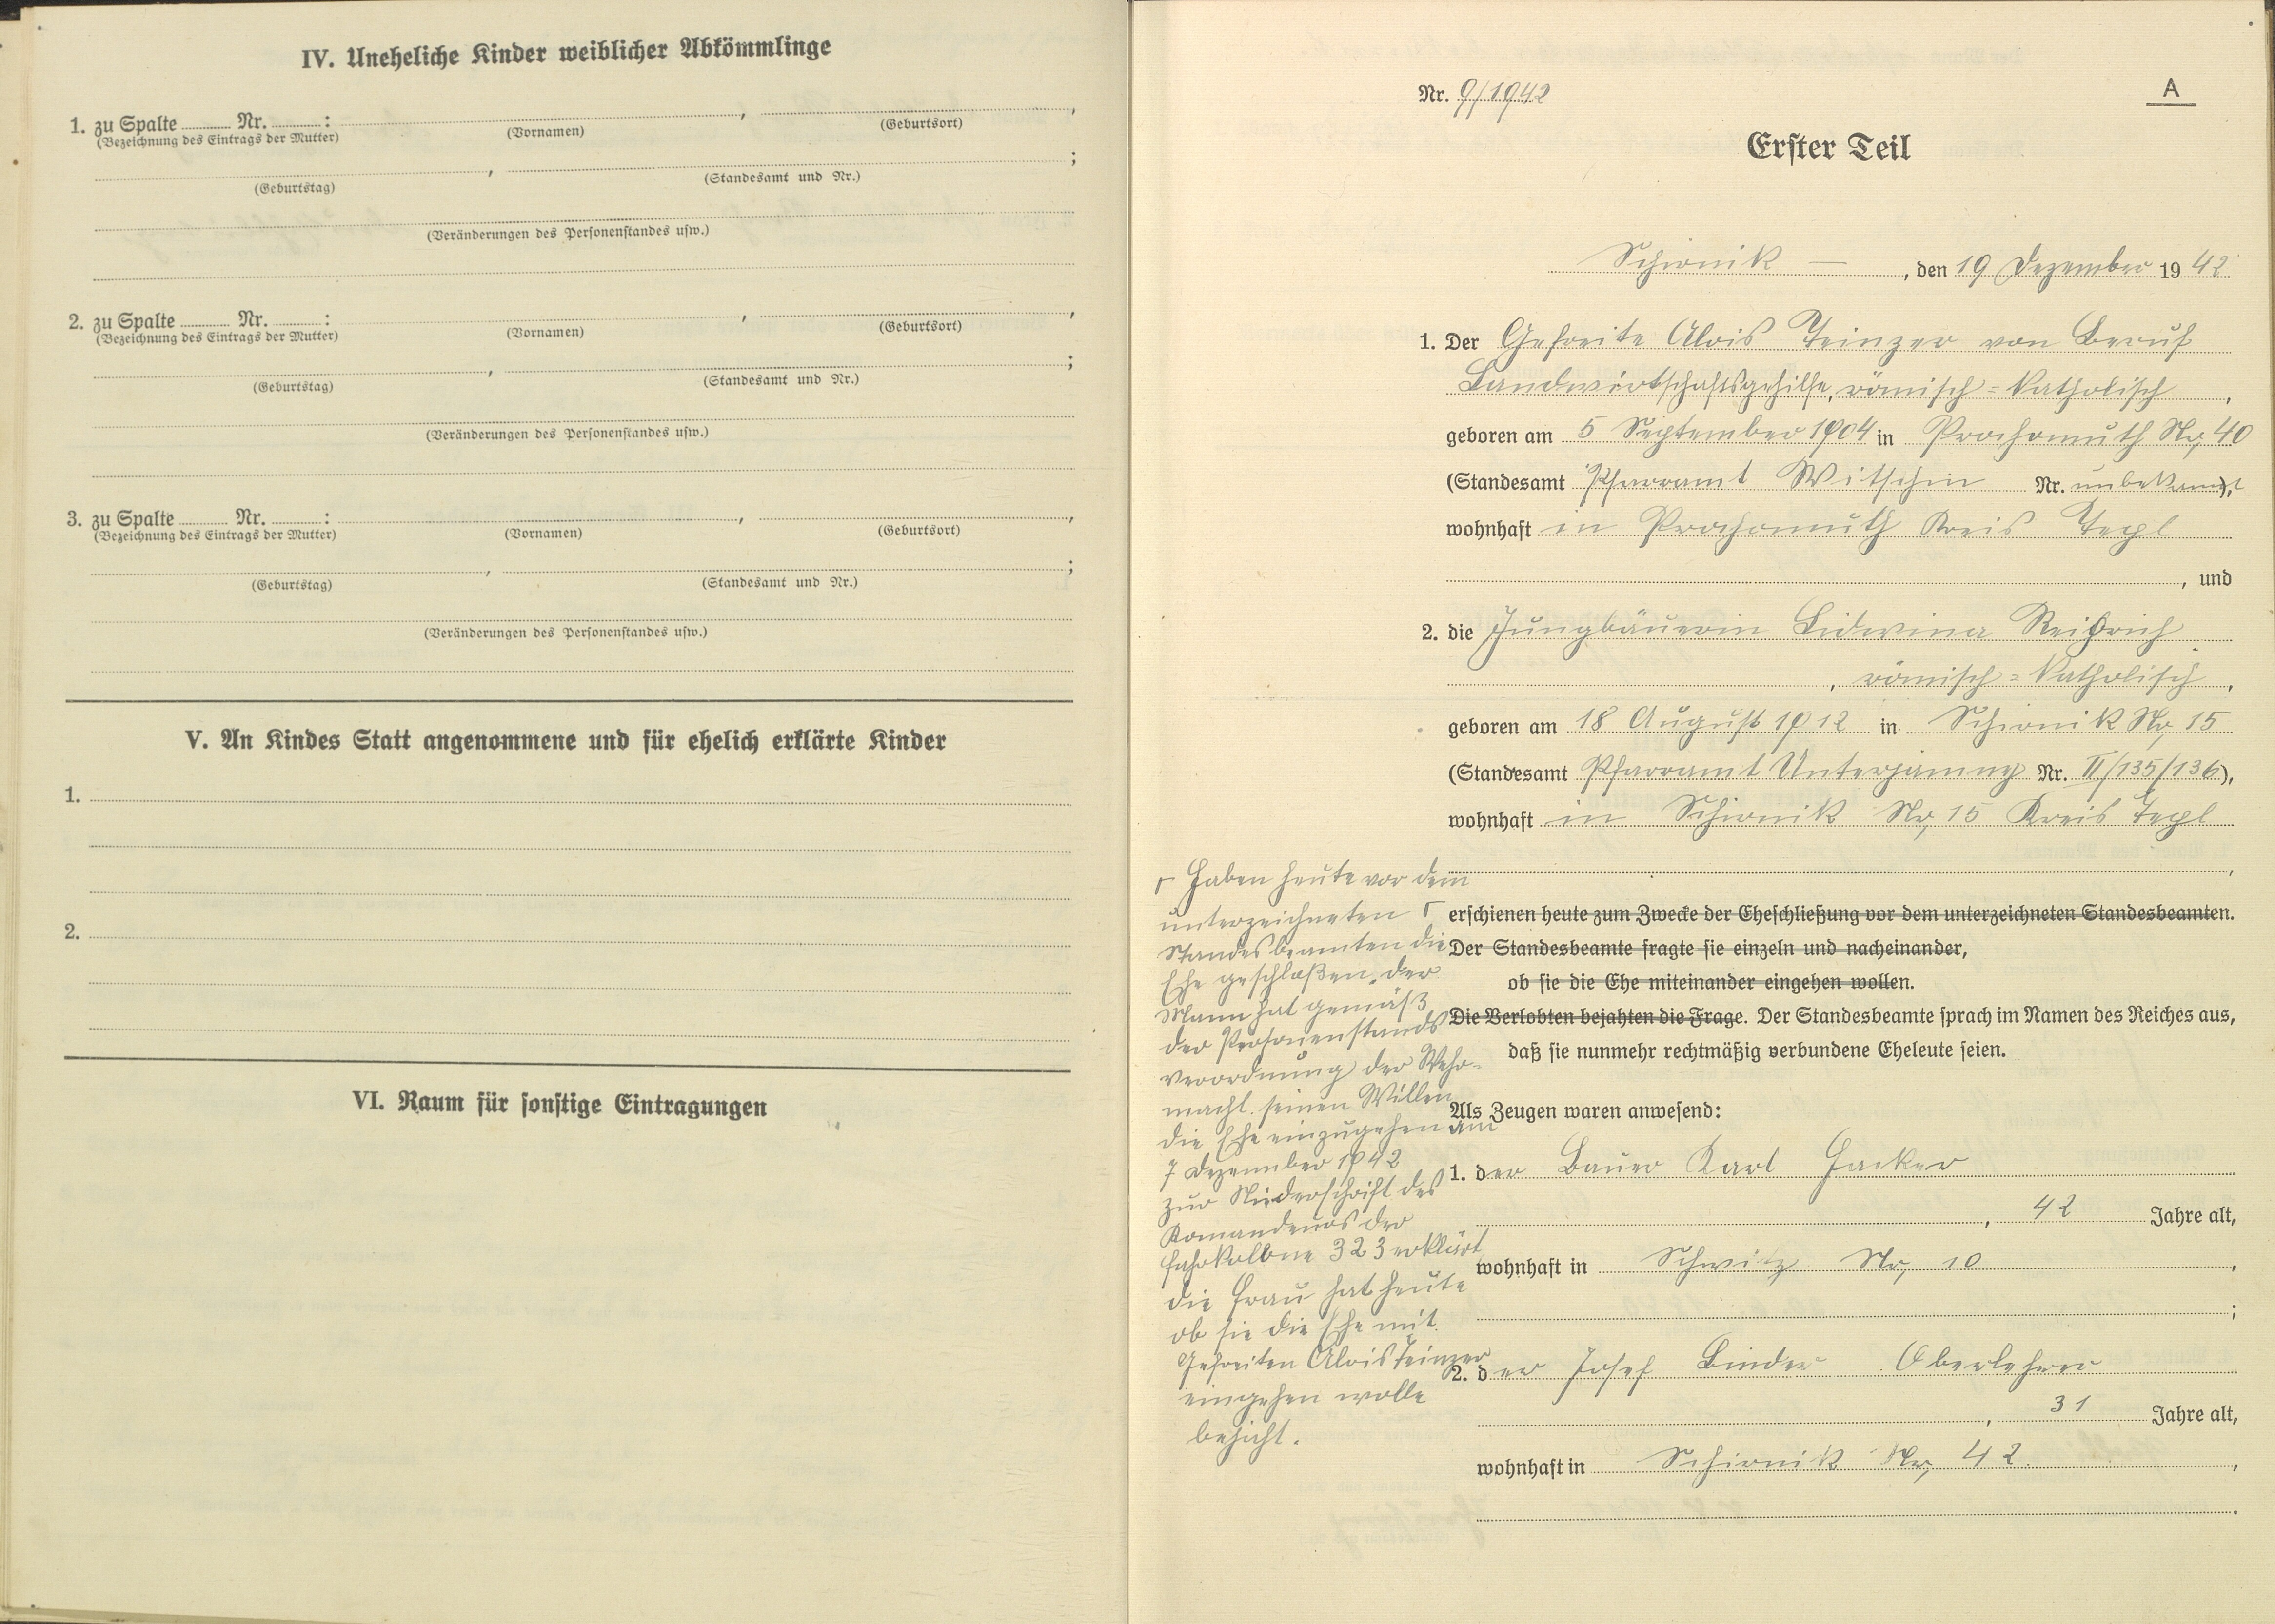 IV. Uneheliche Kinder weiblicher Abkömmlinge
1. zu Spalte ........ Nr. ........ : ........ , ........ ,
(Bezeichnung des Eintrags der Mutter) (Vornamen) (Geburtsort)
........ , ........ ;
(Geburtstag) (Standesamt und Nr.)
(Veränderungen des Personenstandes usw.)
2. zu Spalte ........ Nr. ........ : ........ , ........ ,
(Bezeichnung des Eintrags der Mutter) (Vornamen) (Geburtsort)
........ , ........ ;
(Geburtstag) (Standesamt und Nr.)
(Veränderungen des Personenstandes usw.)
3. zu Spalte ........ Nr. ........ : ........ , ........ ,
(Bezeichnung des Eintrags der Mutter) (Vornamen) (Geburtsort)
........ , ........ ;
(Geburtstag) (Standesamt und Nr.)
(Veränderungen des Personenstandes usw.)
V. An Kindes Statt angenommene und für ehelich erklärte Kinder
1.
2.
VI. Raum für sonstige Eintragungen
Nr. 9/1942
A
Erster Teil
Schirnik — , den 19 Dezember 1942
1. Der Gefreite Alois Teinzer von Beruf
Landwirtschaftsgehilfe, römisch=katholisch ,
geboren am 5 September 1904 in Prochomuth Nr, 40
(Standesamt Pfarramt Witschin Nr. unbekannt),
wohnhaft in Prochomuth Kreis Tepl
, und
2. die Jungbäuerin Lidwina
, römisch=katholisch ,
geboren am 18 August 1912 in Schirnik Nr, 15
(Standesamt Pfarramt Unterjamny Nr. II/135/136),
wohnhaft in Schirnik Nr, 15 Kreis Tepl
,
Γ Haben heute vor dem
unterzeichneten Γ
Standesbeamten die
Ehe geschloßen. der
Mann hat gemäß
der Personenstands
verordnung der Wehr-
macht. seinen Willen
die Ehe einzugehen am
7 Dezember 1942
zur Niederschrift des
Komandeurs der
Fahrkolone 323 erklärt
die Frau hat heute
ob sie die Ehe mit
Gefreiten Alois Teinzer
eingehen wolle
bejaht.
erschienen heute zum Zwecke der Eheschließung vor dem unterzeichneten Standesbeamten.
Der Standesbeamte fragte sie einzeln und nacheinander,
ob sie die Ehe miteinander eingehen wollen.
Die Verlobten bejahten die Frage. Der Standesbeamte sprach im Namen des Reiches aus,
daß sie nunmehr rechtmäßig verbundene Eheleute seien.
Als Zeugen waren anwesend:
1. der Bauer Karl Hacker
, 42 Jahre alt,
wohnhaft in Schwitz Nr, 10 ,
;
2. der Josef Binder Oberlehrer
, 31 Jahre alt,
wohnhaft in Schirnik Nr, 42. ,
.